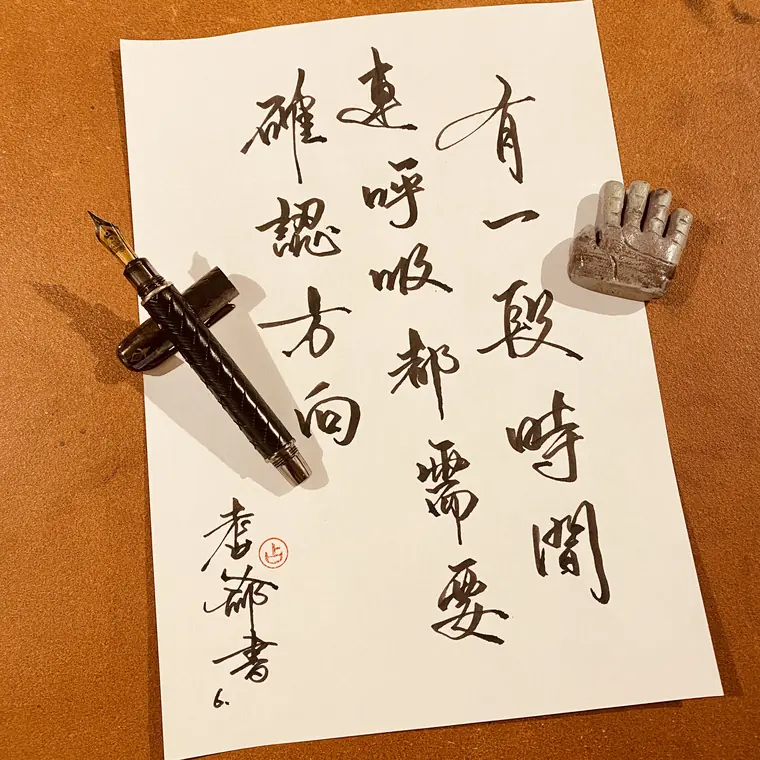 有一段時間
連呼吸都需要
確認方向
書
6.